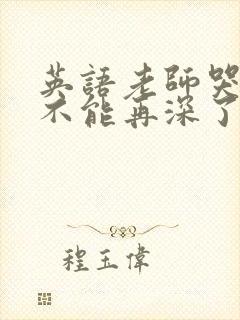 英語老師哭
不能再深了
程玉偉